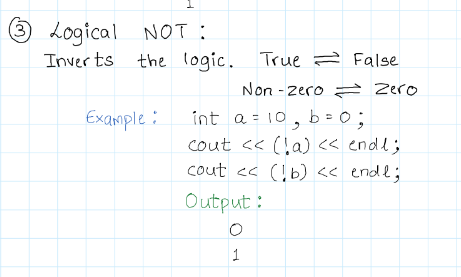 1
③ Logical NOT :
Inverts the logic. True ⇌ False
Non-zero ⇌ Zero
Example : int a = 10, b = 0;
cout << (!a) << endl;
cout << (!b) << endl;
Output :
0
1